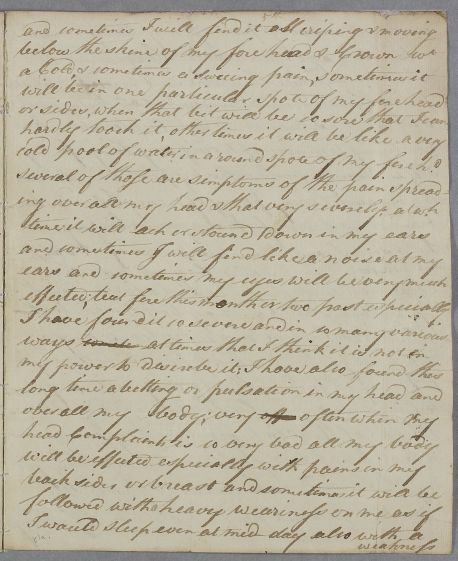 and sometimes I will find it all criping & moving
below the shine of my fore head & Crown wt
a Cold & sometimes a sweeing pain, sometimes it
will be in one particular spote of my fore head
or sides, when that bit will be so sore that I can
hardly tooch it, other times it will be like a very
cold pool of water in a round spote of my fore hd
several of those are simptoms of the pain spread-
ing over all my head & that very severely at wh
time it will ach & stound down in my ears
and sometimes I will find like a noise at my
ears and sometimes my eyes will be very much
effected; but fore this month or two past especially
I have found it so severe and in so many various
ways at times that I think it is not in
my power to discribe it; I have also found this
long time a betting or pulsation in my head and
over all my Body; very often when my
head Complaint is so very bad all my body
will be effected especially with pains in my
back sides or breast and sometimes it will be
followed with a heavy weariness on me as if
I would sleep even at mid day also with a
weakness